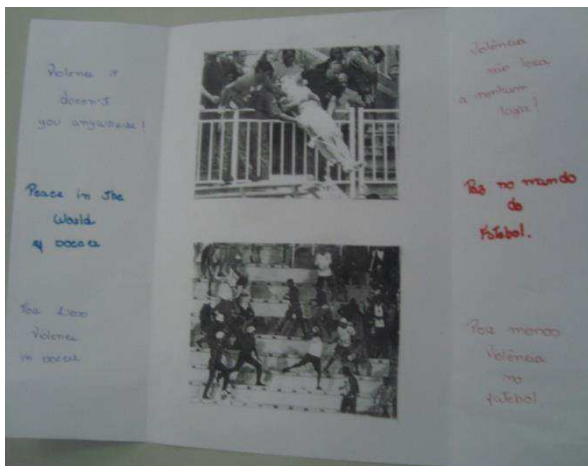 Violence it
doesn't
you anywhere!
Peace in the
World
of soccer
For less
violence
in soccer
Violência
não leva
a nenhum
lugar!
Paz no mundo
do
Futebol.
Por menos
Violência
no
futebol